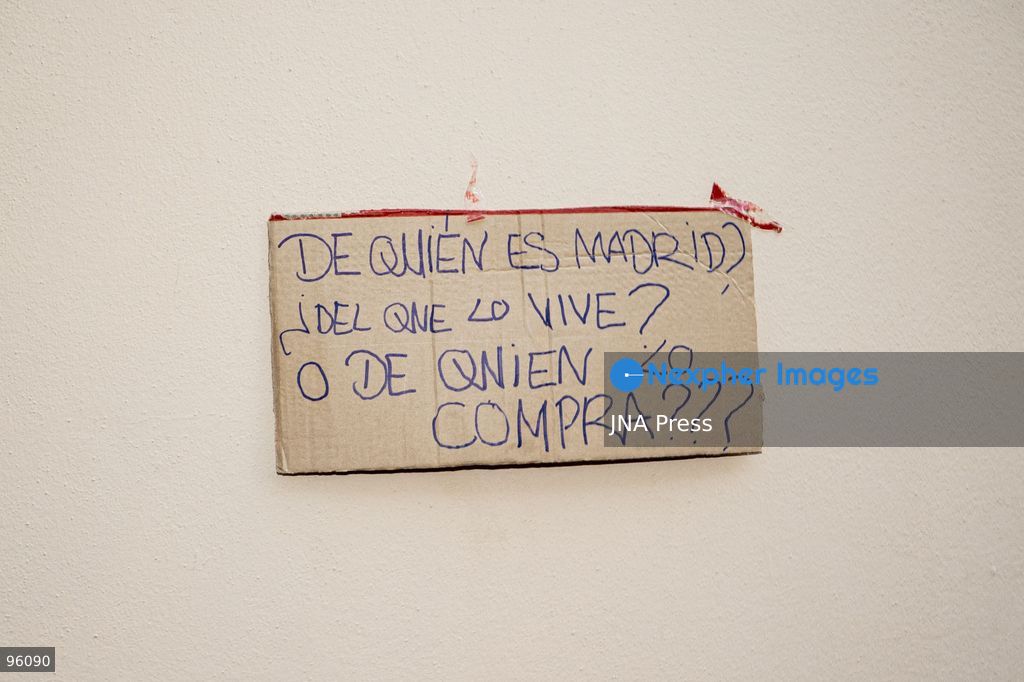 DE QUIÉN ES MADRID?
¿DEL QUE LO VIVE?
O DE QUIEN LO
COMPRA???
Nexpher Images
JNA Press
96090